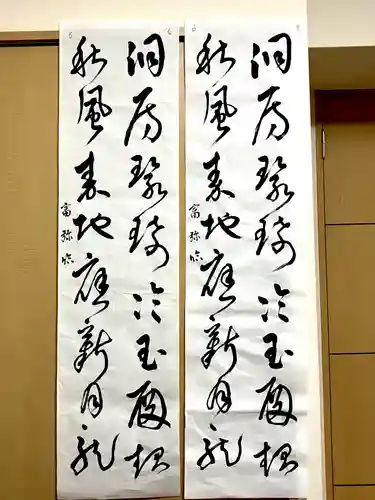 洞房環珮冷玉殿起
秋風秦地應新月龍
富弥臨
洞房環珮冷玉殿起
秋風秦地應新月龍
富弥臨